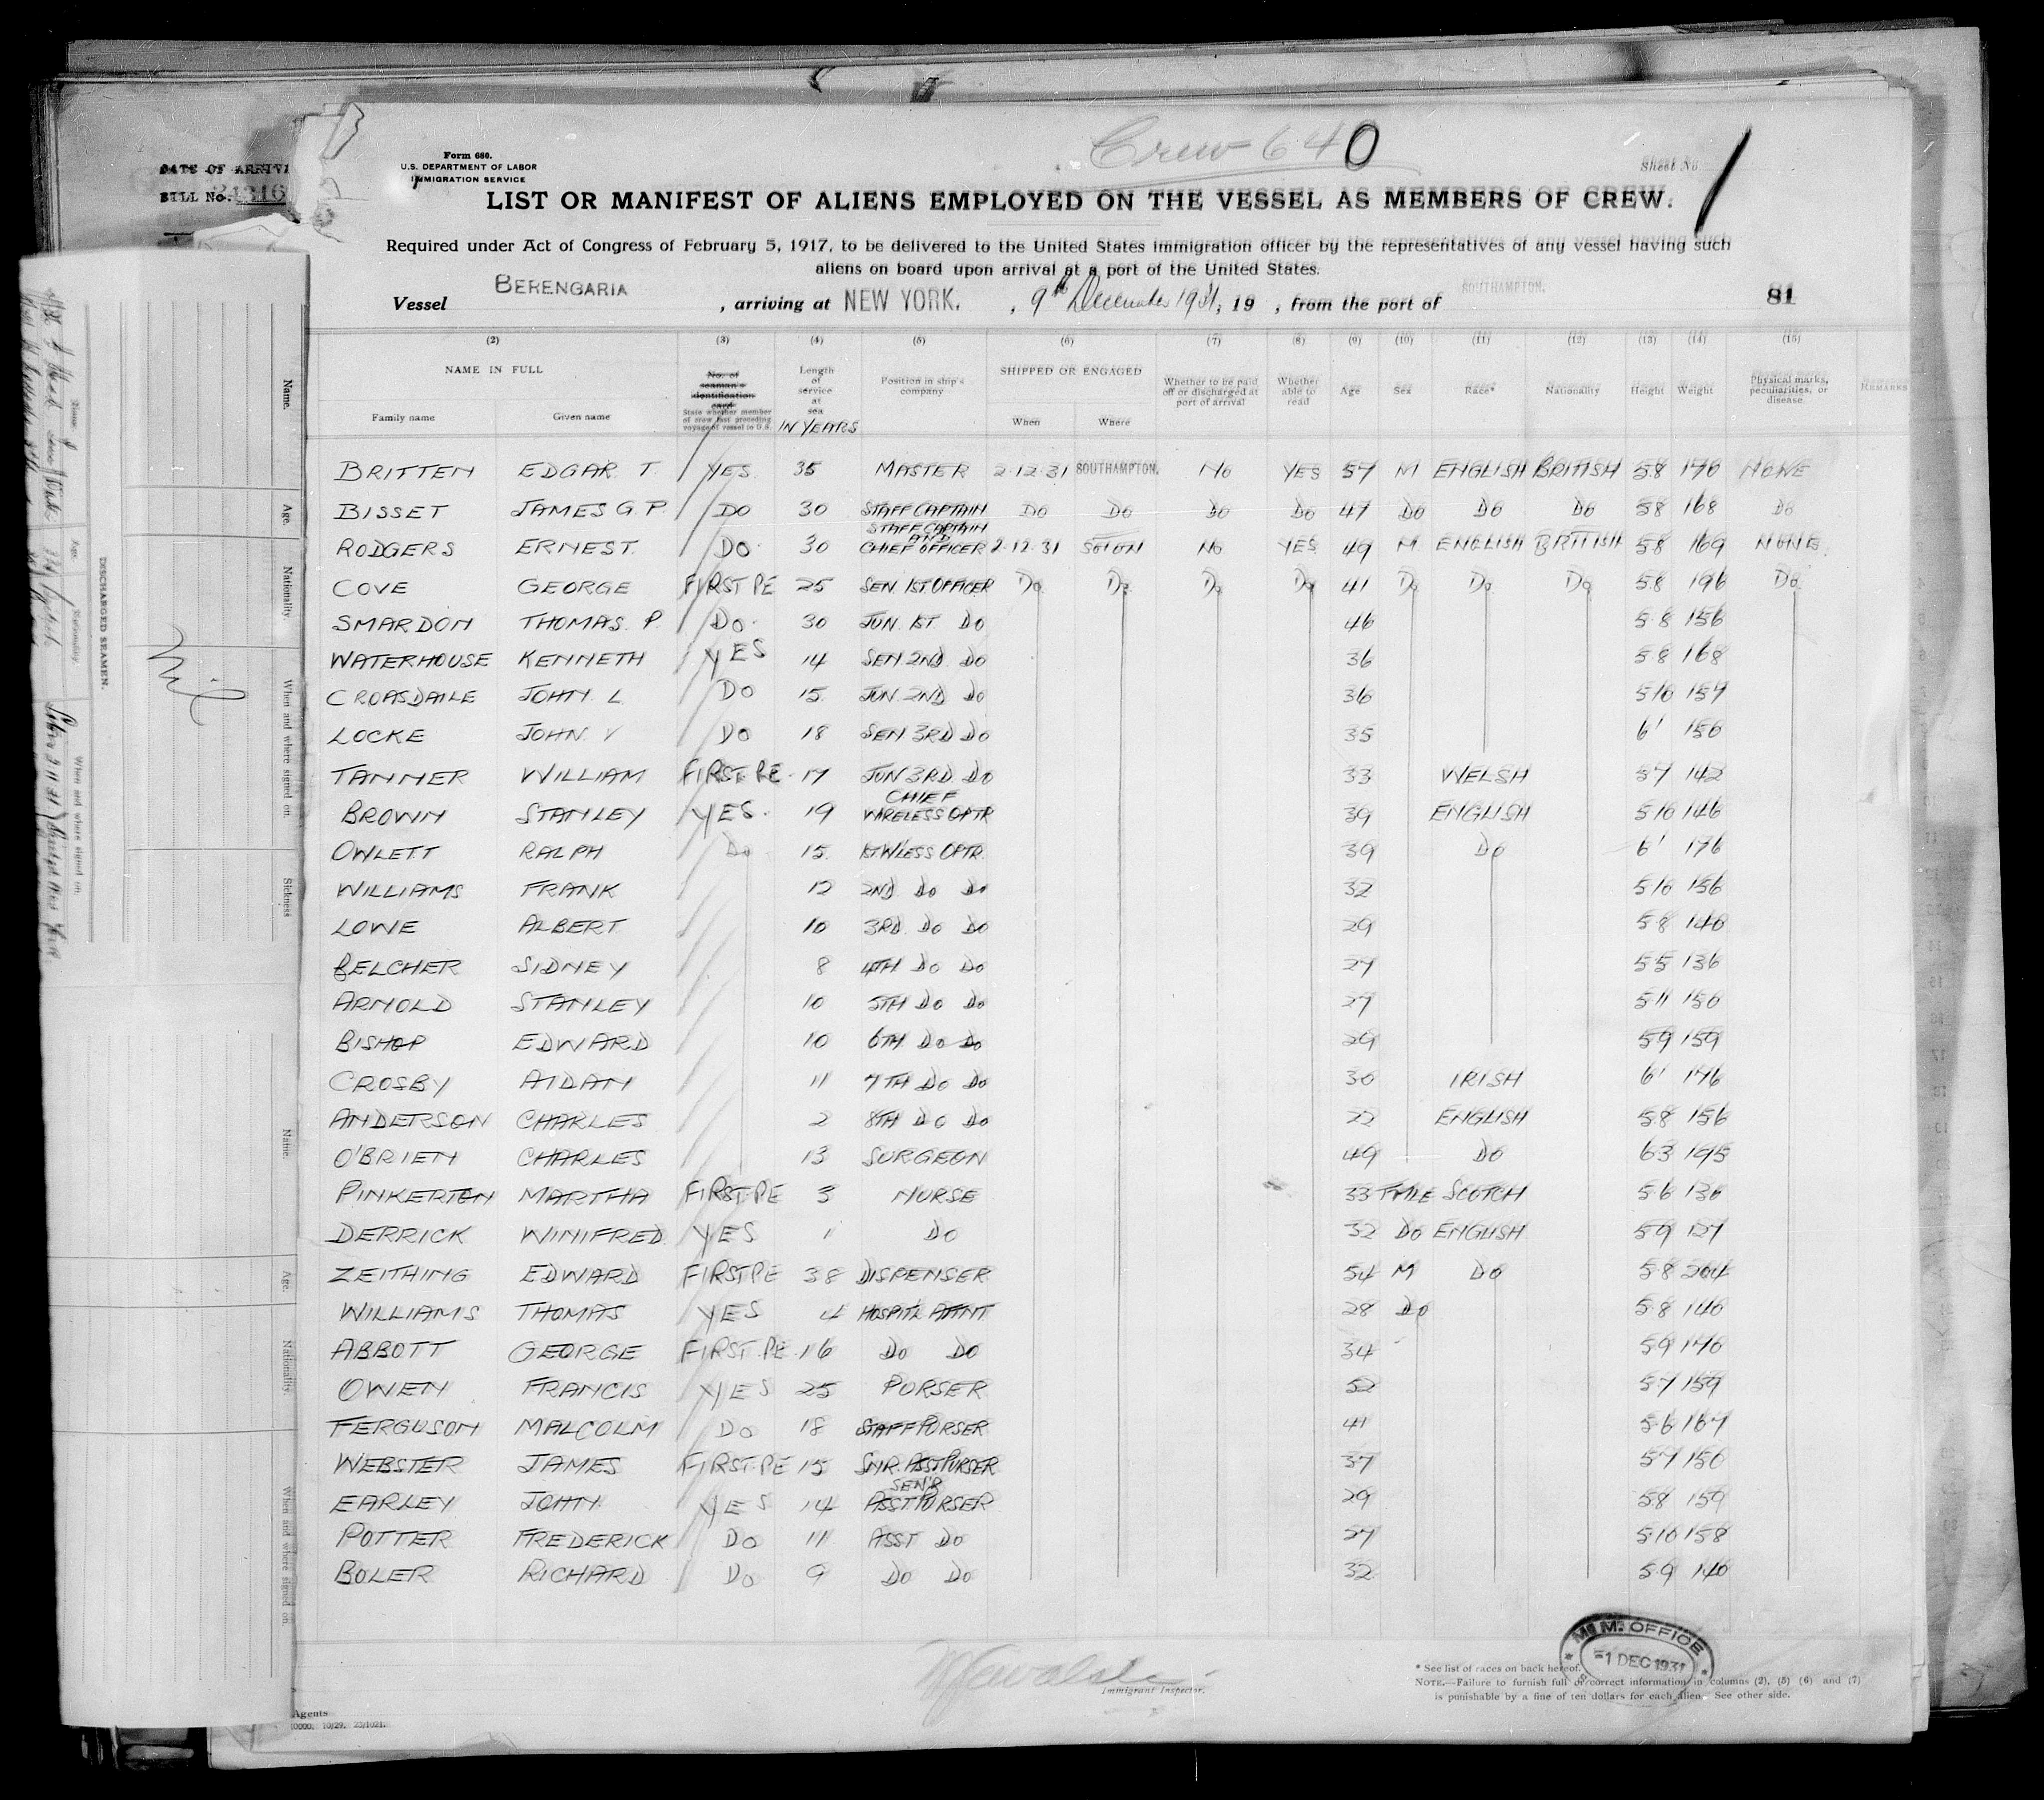 Crew 640
DATE OF ARRIVA
BILL No.
Form 680.
U.S. DEPARTMENT OF LABOR
IMMIGRATION SERVICE
Sheet No 1
LIST OR MANIFEST OF ALIENS EMPLOYED ON THE VESSEL AS MEMBERS OF CREW.
Required under Act of Congress of February 5, 1917, to be delivered to the United States immigration officer by the representatives of any vessel having such
aliens on board upon arrival at a port of the United States.
Vessel BERENGARIA, arriving at NEW YORK., 9th December 1931, 19 , from the port of SOUTHAMPTON. 81
(2) (3) (4) (5) (6) (7) (8) (9) (10) (11) (12) (13) (14) (15)
NAME IN FULL
Family name Given name
No. of seaman's identification card
State whether member of crew last preceding voyage of vessel to U.S.
Length of service at sea IN YEARS
Position in ship's company
SHIPPED OR ENGAGED
When Where
Whether to be paid off or discharged at port of arrival
Whether able to read
Age Sex Race* Nationality Height Weight
Physical marks, peculiarities, or disease.
REMARKS
BRITTEN EDGAR T. YES 35 MASTER 2.12.31 SOUTHAMPTON. NO YES 57 M ENGLISH BRITISH 5.8 170 NONE
BISSET JAMES G.P. DO 30 STAFF CAPTAIN DO DO DO DO 47 DO DO DO 5.8 168 DO
RODGERS ERNEST. DO 30 STAFF CAPTAIN AND CHIEF OFFICER 2.12.31 SOTON NO YES 49 M ENGLISH BRITISH 5.8 169 NONE.
COVE GEORGE FIRST PE 25 SEN. 1ST. OFFICER DO DO DO DO 41 DO DO DO 5.8 196 DO
SMARDON THOMAS. P. DO 30 JUN. 1ST. DO 46 5.8 156
WATERHOUSE KENNETH YES 14 SEN 2ND DO 36 5.8 168
CROASDAILE JOHN L. DO 15. JUN. 2ND DO 36 5.10 157
LOCKE JOHN. V DO 18 SEN 3RD DO 35 6' 150
TANNER WILLIAM FIRST PE 17 JUN 3RD. DO 33 WELSH 5.7 142
BROWN STANLEY YES 19 CHIEF WIRELESS OPTR 39 ENGLISH 5.10 146
OWLETT RALPH DO 15. 1ST. W'LESS OPTR. 39 DO 6' 176
WILLIAMS FRANK 12 2ND DO DO 32 5.10 156
LOWE ALBERT 10 3RD. DO DO 29 5.8 140
BELCHER SIDNEY 8 4TH DO DO 27 5.5 136
ARNOLD STANLEY 10 5TH DO DO 27 5.11 150
BISHOP EDWARD 10 6TH DO DO 29 5.9 159
CROSBY AIDAN 11 7TH DO DO 30 IRISH 6' 176
ANDERSON CHARLES 2 8TH DO DO 22 ENGLISH 5.8 156
O'BRIEN CHARLES 13 SURGEON 49 DO 6.3 195
PINKERTON MARTHA FIRST.PE 3 NURSE 33 FMLE SCOTCH 5.6 130
DERRICK WINIFRED YES 1 DO 32 DO ENGLISH 5.9 127
ZEITHING EDWARD FIRST PE 38 DISPENSER 54 M DO 5.8 204
WILLIAMS THOMAS YES 4 HOSPITAL ATTNT 28 DO 5.8 140
ABBOTT GEORGE FIRST.PE. 16 DO DO 34 5.9 140
OWEN FRANCIS YES 25 PURSER 52 5.7 159
FERGUSON MALCOLM DO 18 STAFF PURSER 41 5.6 167
WEBSTER JAMES FIRST.PE 15 SNR. ASST PURSER 37 5.7 150
EARLEY JOHN YES 14 SEN'R ASST PURSER 29 5.8 159
POTTER FREDERICK DO 11 ASST DO 27 5.10 158
BOLER RICHARD DO 9 DO DO 32 5.9 140
Immigrant Inspector.
* See list of races on back hereof.
NOTE.—Failure to furnish full or correct information in columns (2), (5) (6) and (7)
is punishable by a fine of ten dollars for each alien. See other side.
M. M. OFFICE
1 DEC 1931
Agents
10000. 10/29. 23/1021.
DISCHARGED SEAMEN.
Name.
Age.
Nationality.
When and where signed on.
Sickness
Nil
Name.
Age.
Nationality.
When and where signed on.